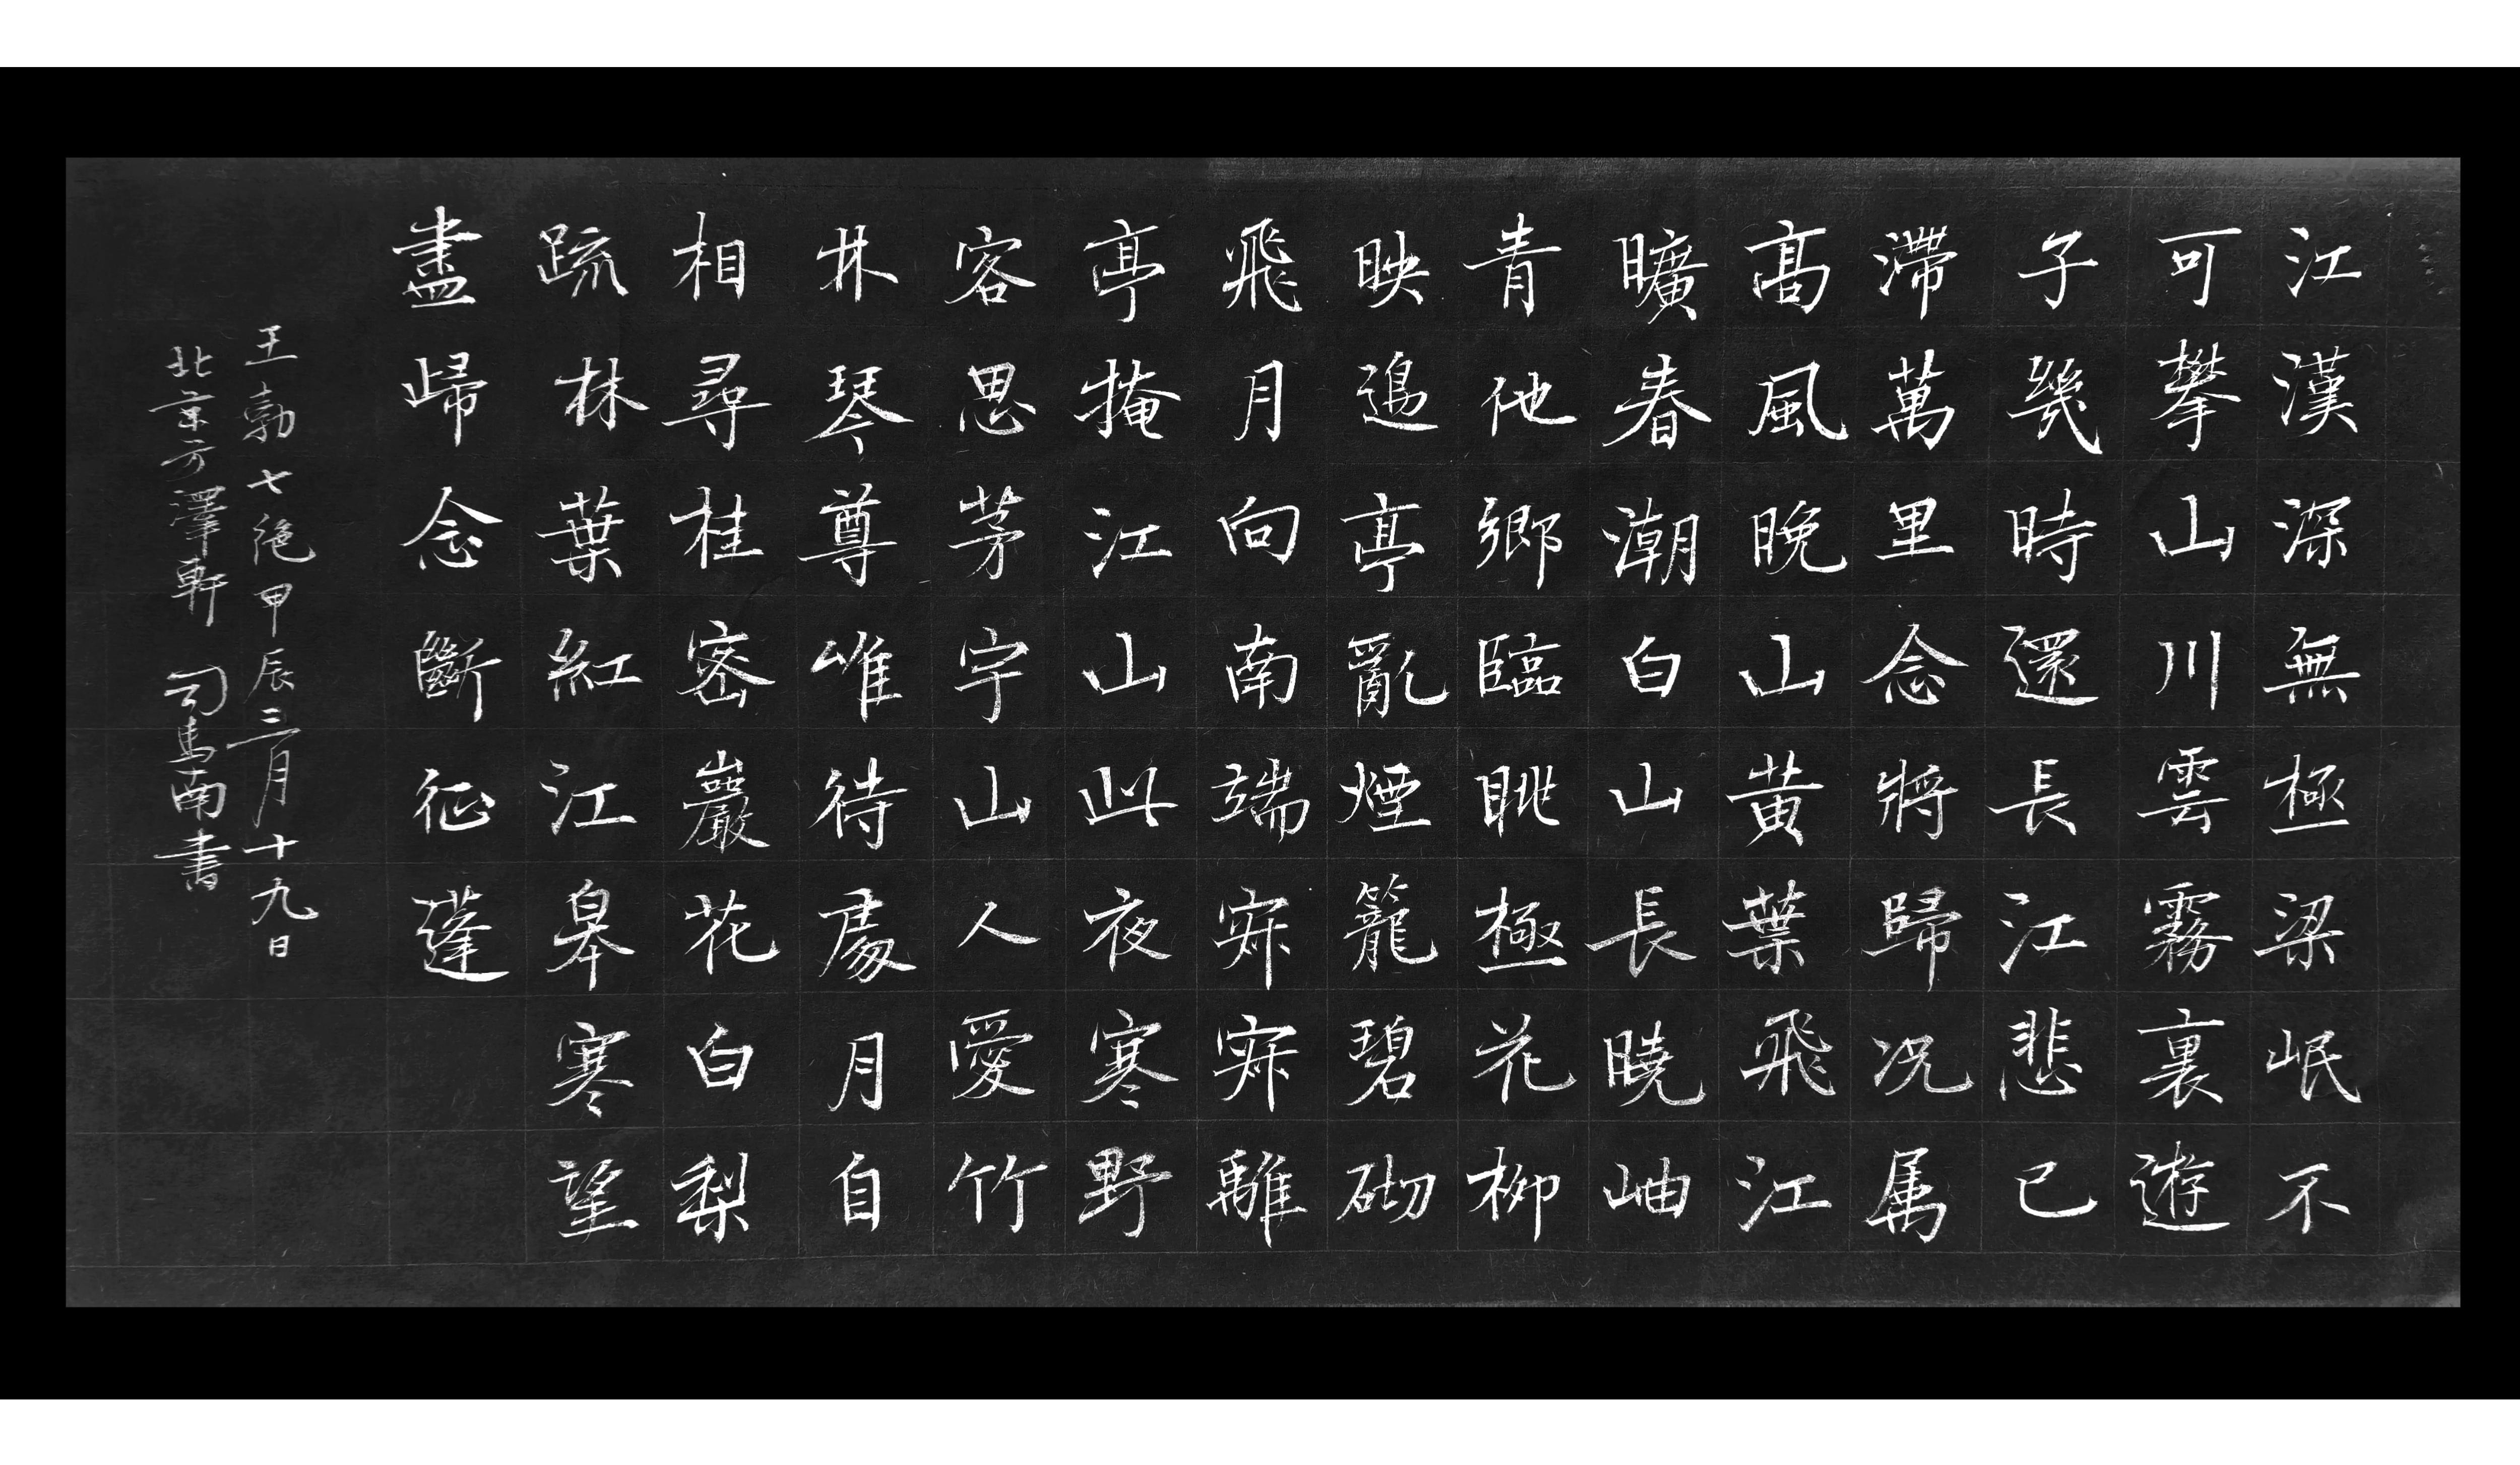 江漢深無極梁岷不
可攀山川雲霧裏遊
子幾時還長江悲已
滯萬里念將歸況属
高風晚山黃葉飛江
曠春潮白山長曉岫
青他鄉臨眺極花柳
映邊亭亂煙籠碧砌
飛月向南端寂寂離
亭掩江山此夜寒野
客思茅宇山人愛竹
林琴尊唯待處月自
相尋桂密巖花白梨
疏林葉紅江皋寒望
盡歸念斷征蓬
王勃七絕甲辰三月十九日
北京方澤軒 司馬南書